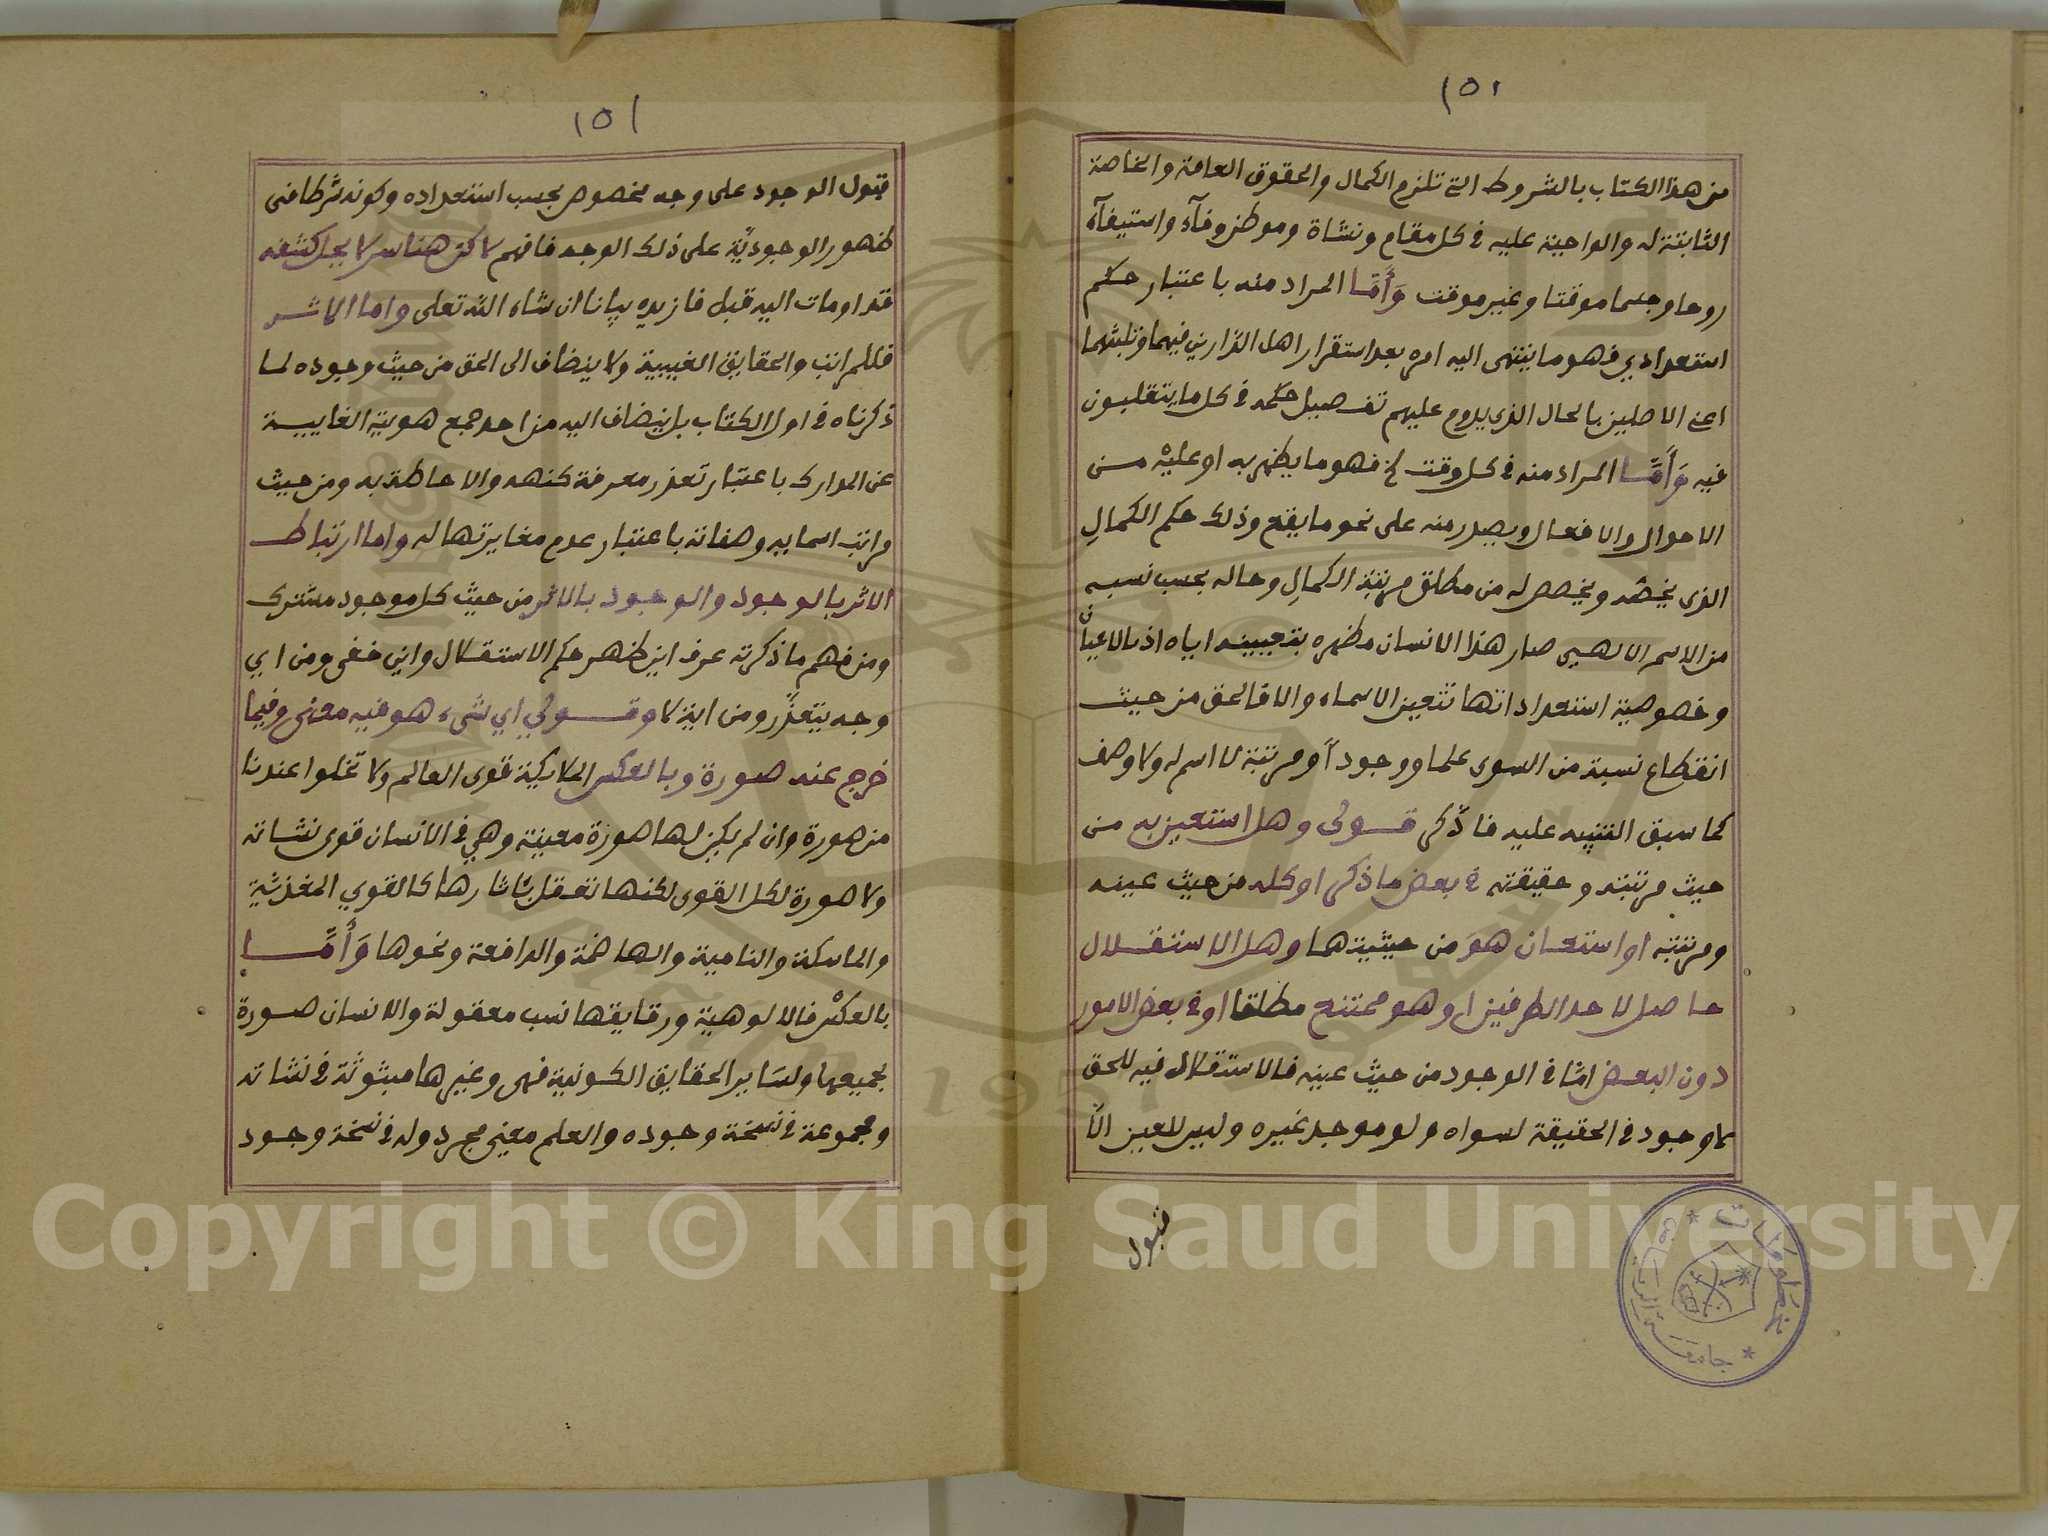 ١٥١
من هذا الكتاب بالشروط التى تلزم الكمال والحقوق العامة والخاصة
الثابتة له والواجبة عليه فى كل مقام ونشاة وموطن وفآء واستيفآء
روحا وجسما موقتا وغير موقت وَأَمَّا المراد منه باعتبار حكم
استعدادي فهو ما ينتهى اليه امره بعد استقرار اهل الدارين فيهما وتلبثهما
اعنى الاصلين بالحال الذى يدوم عليهم تفصيل حكمه فى كل ما يتقلبون
فيه وَأَمَّا المراد منه فى كل وقت الخ فهو ما يظهر به او عليْه من
الاحوال والافعال ويصدر منه على نحو ما يقع وذلك حكم الكمالِ
الذى يخصّه ويخصص له من مطلق مرتبة الكمالِ وحاله بحسب نسبه
من الاسم الالهىى صار هذا الانسان مظهره بتعيينه اياه اذ بالاعيان
وخصوصية استعداداتها تتعين الاسماء والا فالحق من حيث
انقطاع نسبة من السوى علما ووجوداً ومرتبة لا اسم له ولا وصف
كما سبق التنبيه عليه فاذكر قولى وهل استعين به من
حيث مرتبته وحقيقته فى بعض ما ذكر او كله من حيث عينه
ومرتبته او استعان هوَ من حيثيتهما وهل الاستقلال
حاصل لاحد الطرفين او هو ممتنع مطلقا او فى بعض الامور
دون البعض امّا فى الوجود من حيث عينه فالاستقلال فيه للحق
لا وجود فى الحقيقة لسواه ولو موجد غيره وليس للعين الّا
قبول
١٥١
قبول الوجود على وجه مخصوص بحسب استعداده وكونه شرطا فى
ظهور الوجوديّة على ذلك الوجه فافهم لا كن هنا سر لا يحل كشفه
قد اومات اليه قبل فازيده بيانا ان شاء اللّه تعلى واما الاثر
فللمراتب والحقايق الغيبية ولا يضاف الى الحق من حيث وجوده لما
ذكرناه فى اول الكتاب بل يضاف اليه من احد جمع هويته الغايبية
عن المدارك باعتبار تعذر معرفة كنهه والاحاطة به ومن حيث
مراتب اسمايه وصفاته باعتبار عدم مغايرتها له واما ارتباط
الاثر بالوجود والوجود بالاثر من حيث كل موجود مشترك
ومن فهم ما ذكرته عرف اين ظهر حكم الاستقلال واين خفى ومن اي
وجه يتعذّر ومن اية لا وقولي اي شىء هو فيه معنى وفيما
خرج عنه صورة وبالعكس الملايكة قوى العالم ولا تخلوا عندنا
من صورة وان لم يكن لها صورة معينة وهي فى الانسان قوى نشاته
ولا صورة لكل القوى لكنها تعقل بآثارها كالقوي المغذية
والماسكة والنامية والهاضمة والدافعة ونحوها وَأَمَّا
بالعكس فالالوهية ورقايقها نسب معقولة والانسان صورة
لجميعها ولسَاير الحقايق الكونية فهى وغيرها مبثوثة فى نشاته
ومجموعة فى نسخة وجوده والعلم معنى مجرد وله فى نسخة وجود
جامعة الرياض
مخطوطات
Copyright © King Saud University
1957